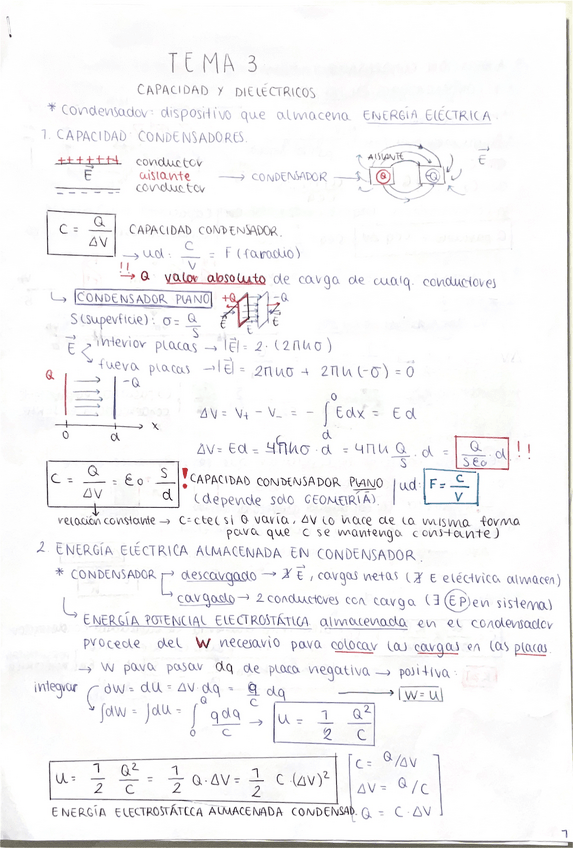 TEMA 3
CAPACIDAD Y DIELÉCTRICOS
* Condensador: dispositivo que almacena ENERGÍA ELÉCTRICA.
1. CAPACIDAD CONDENSADORES.
+++++++ conductor
E⃗ aislante → CONDENSADOR → AISLANTE Q -Q E⃗
------ conductor
C = Q/ΔV CAPACIDAD CONDENSADOR.
→ ud: C/V = F (faradio)
!! → Q valor absoluto de carga de cualq. conductores
↳ CONDENSADOR PLANO +Q -Q
S(superficie): σ = Q/S E⃗ E⃗ E⃗
E⃗ interior placas → |E⃗| = 2·(2πkσ)
fuera placas → |E⃗| = 2πkσ + 2πk(-σ) = 0⃗
Q -Q
0 d x
ΔV = V+ - V- = -∫_d^0 Edx = Ed
ΔV = Ed = 4πkσ·d = 4πk Q/S · d = Q/Sε0 · d !!
C = Q/ΔV = ε0 S/d ! CAPACIDAD CONDENSADOR PLANO | ud: F = C/V
(depende solo GEOMETRÍA).
relación constante → C=cte (si Q varía, ΔV lo hace de la misma forma
para que C se mantenga constante)
2. ENERGÍA ELÉCTRICA ALMACENADA EN CONDENSADOR.
* CONDENSADOR → descargado → ∄ E⃗, cargas netas (∄ E eléctrica almacen)
→ cargado → 2 conductores con carga (∃ EP en sistema)
↳ ENERGÍA POTENCIAL ELECTROSTÁTICA almacenada en el condensador
procede del W necesario para colocar las cargas en las placas.
→ W para pasar dq de placa negativa → positiva:
integrar dW = dU = ΔV dq = q/C dq → W = U
∫dW = ∫dU = ∫_0^Q qdq/C → U = 1/2 Q²/C
U = 1/2 Q²/C = 1/2 Q·ΔV = 1/2 C·(ΔV)²
C = Q/ΔV
ΔV = Q/C
Q = C·ΔV
ENERGÍA ELECTROSTÁTICA ALMACENADA CONDENSAD.
1